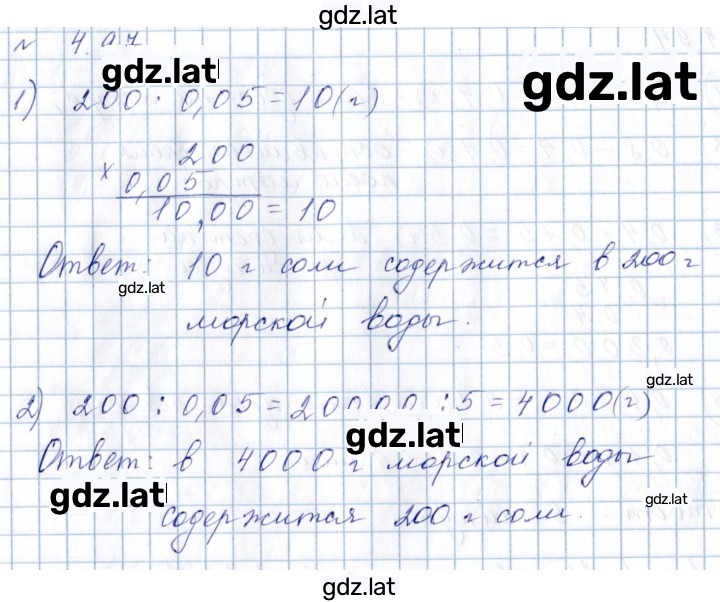 gdz.lat
№ 4.97
gdz.lat
gdz.lat
1) 200 · 0,05 = 10 (г)
× 200
0,05
10,00 = 10
Ответ: 10 г соли содержится в 200 г
gdz.lat
морской воды.
gdz.lat
2) 200 : 0,05 = 20000 : 5 = 4000 (г)
gdz.lat
Ответ: в 4000 г морской воды
gdz.lat
gdz.lat
содержится 200 г соли.
gdz.lat